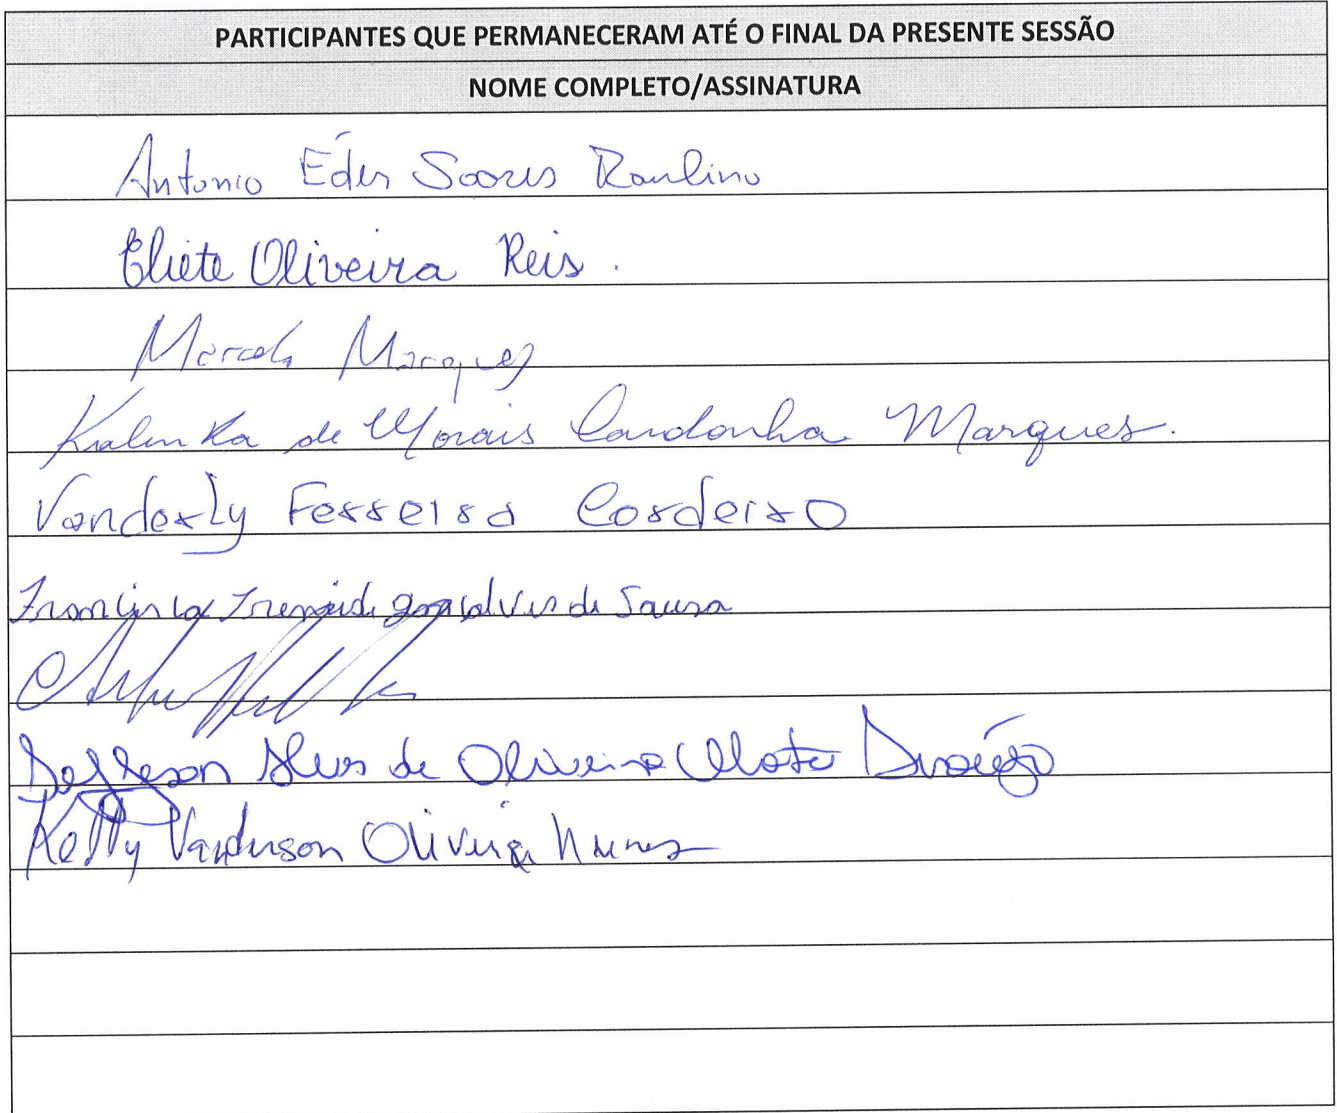 PARTICIPANTES QUE PERMANECERAM ATÉ O FINAL DA PRESENTE SESSÃO
NOME COMPLETO/ASSINATURA
Antonio Éder Soares Raulino
Eliete Oliveira Reis.
Marcelo Marques
Kalinka de Morais Cardonha Marques.
Vanderly Ferreira Cordeiro
Francisca Gonçalves de Sousa
Jefferson Alves de Oliveira Mota Araújo
Kelly Vanderson Oliveira Nunes